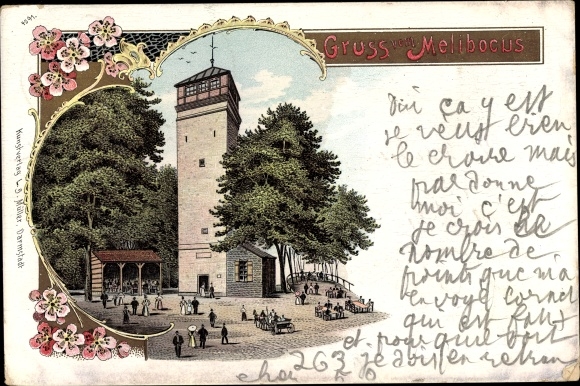 1291.
Gruss vom Melibocus
Kunstverlag L. S. Müller, Darmstadt
Oui ça y est
je veux bien
le croire mais
pardonne
moi c'est
je crois le
nombre de
points que m'a
envoyé Cornet
qui est faux
et pourquoi
263 je dois en